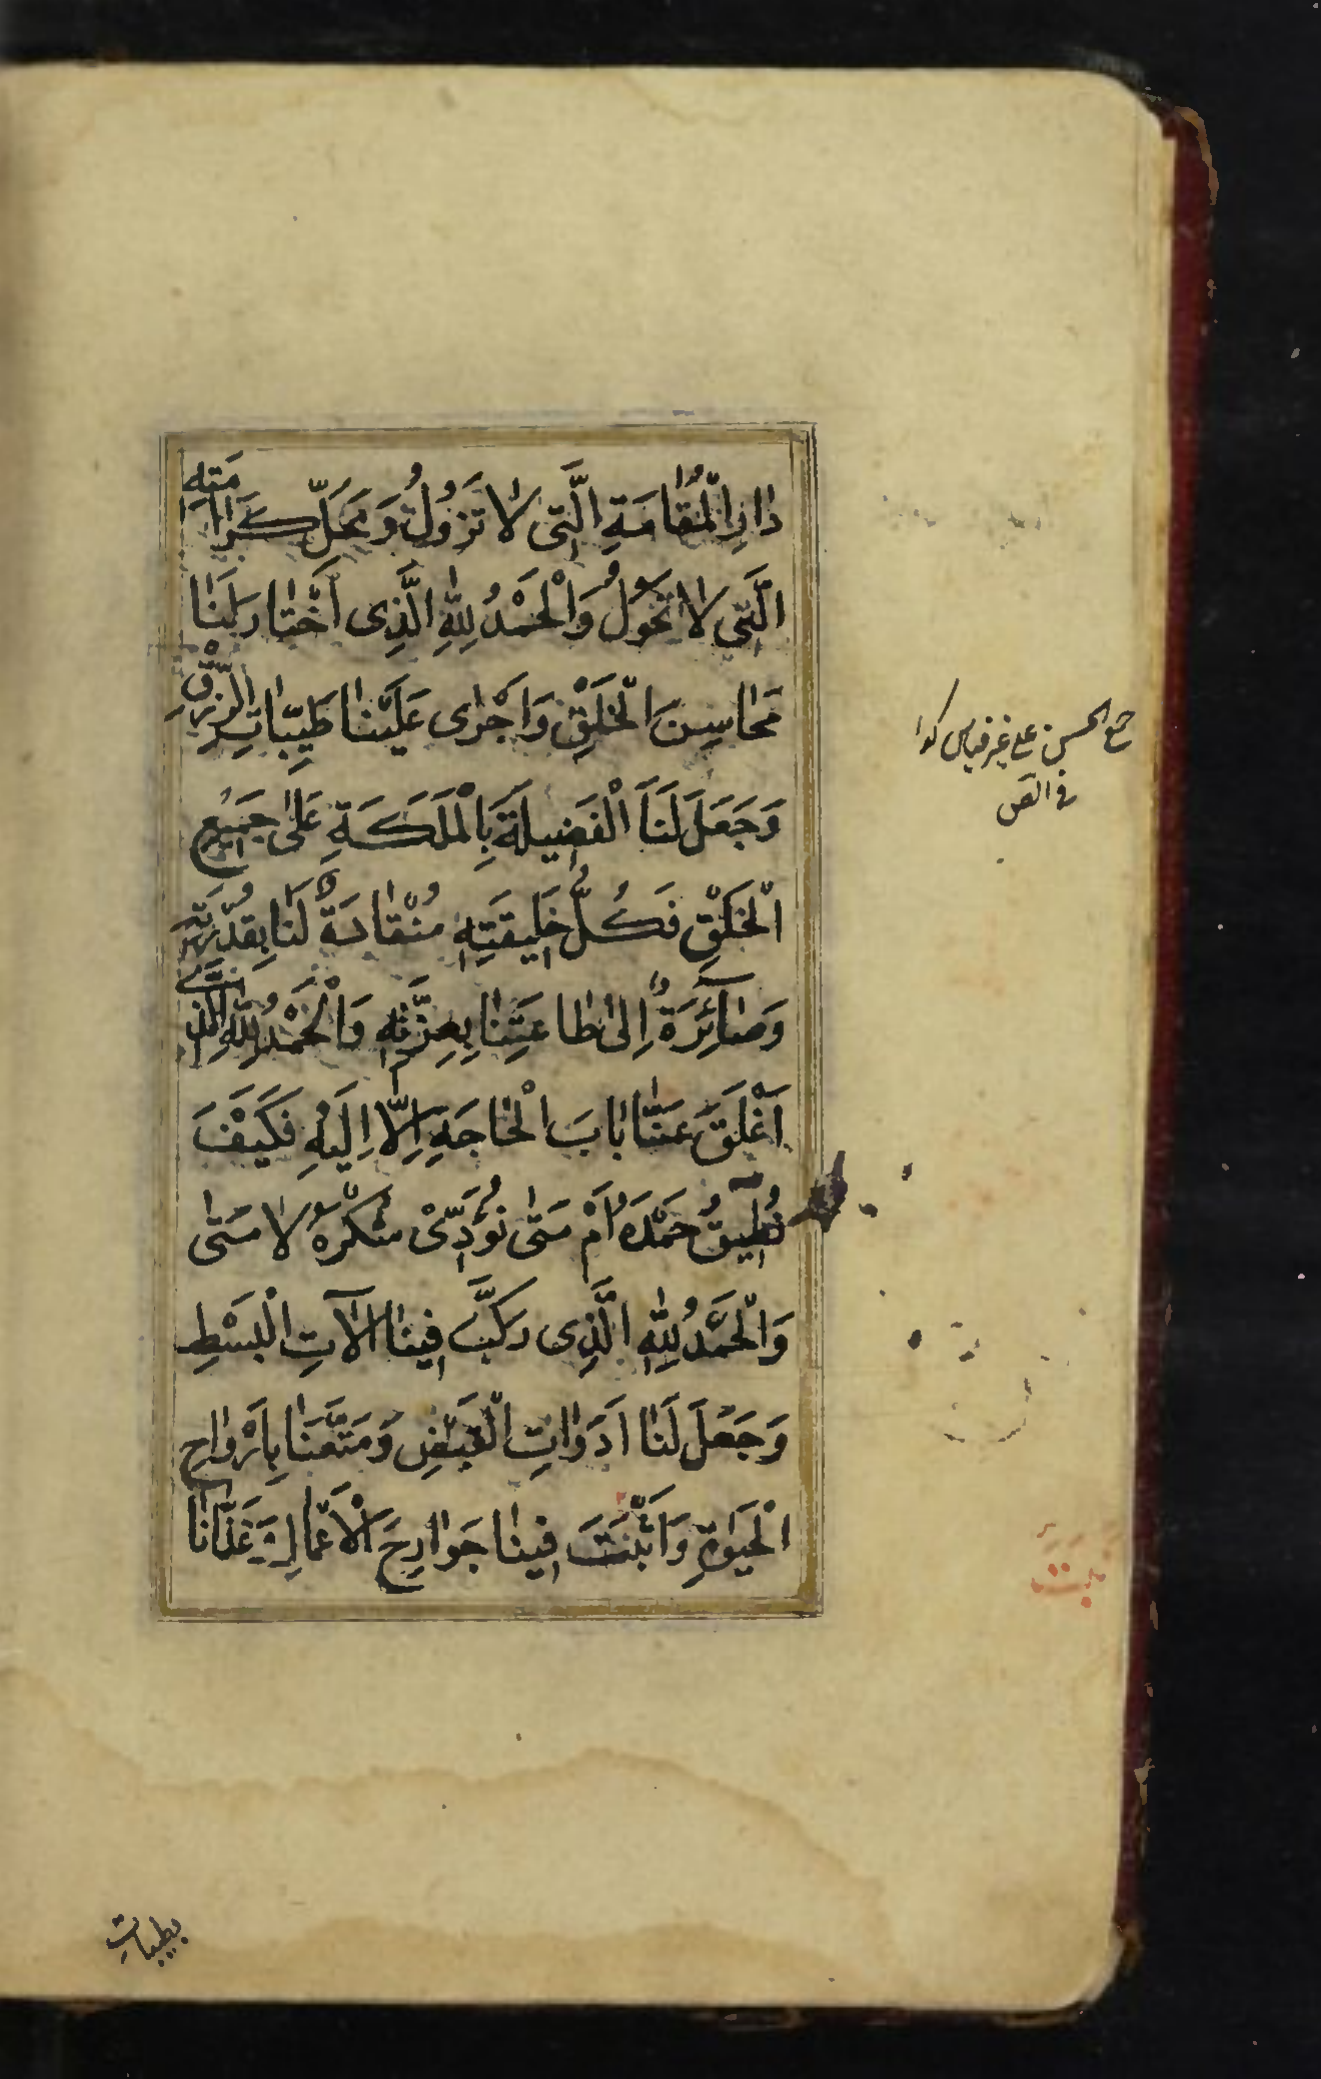 دارِ الْمُقامَةِ الَّتی لا تَزُولُ وَمَحَلِّ كَرامَتِهِ
الَّتی لا تَحُولُ وَالْحَمْدُ لِلّٰهِ الَّذِی اَخْتارَ لَنا
مَحاسِنَ الْخَلْقِ وَاَجْرٰی عَلَیْنا طَیِّباتِ الرِّزْقِ
وَجَعَلَ لَنَا الْفَضِیلَةَ بِالْمَلَكَةِ عَلٰی جَمِیعِ
الْخَلْقِ فَكُلُّ خَلِیقَتِهِ مُنْقادَةٌ لَنا بِقُدْرَتِهِ
وَصآئِرَةٌ اِلٰی طاعَتِنا بِعِزَّتِهِ وَالْحَمْدُ لِلّٰهِ الَّذی
اَغْلَقَ عَنّا بابَ الْحاجَةِ اِلّا اِلَیْهِ فَكَیْفَ
نُطِیقُ حَمْدَهُ اَمْ مَتٰی نُؤَدِّیْ شُكْرَهُ لا مَتٰی
وَالْحَمْدُ لِلّٰهِ الَّذِی رَكَّبَ فِینا الآتِ الْبَسْطِ
وَجَعَلَ لَنا اَدَواتِ الْقَبْضِ وَمَتَّعَنا بِاَرْواحِ
الْحَیٰوةِ وَاَثْبَتَ فِینا جَوارِحَ الْاَعْمالِ وَغَذّانا
جمع الحسن علی غیر قیاس كذا
فی الص
بطیبات